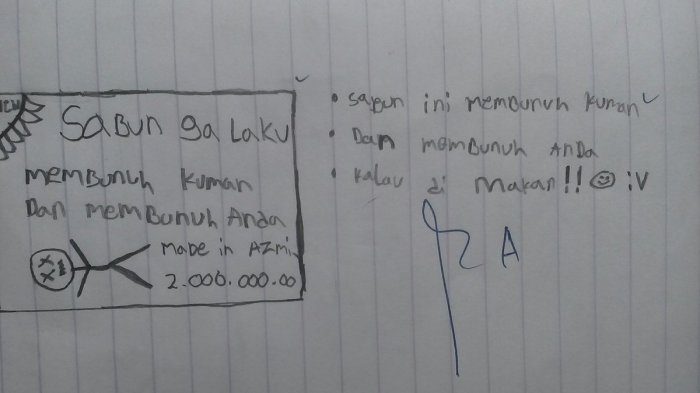 Sabun ga laku
membunuh kuman
Dan membunuh Anda
made in Azmi
2.000.000.00
• Sabun ini membunuh kuman
• Dan membunuh Anda
• kalau di makan!! ☺ :V
A